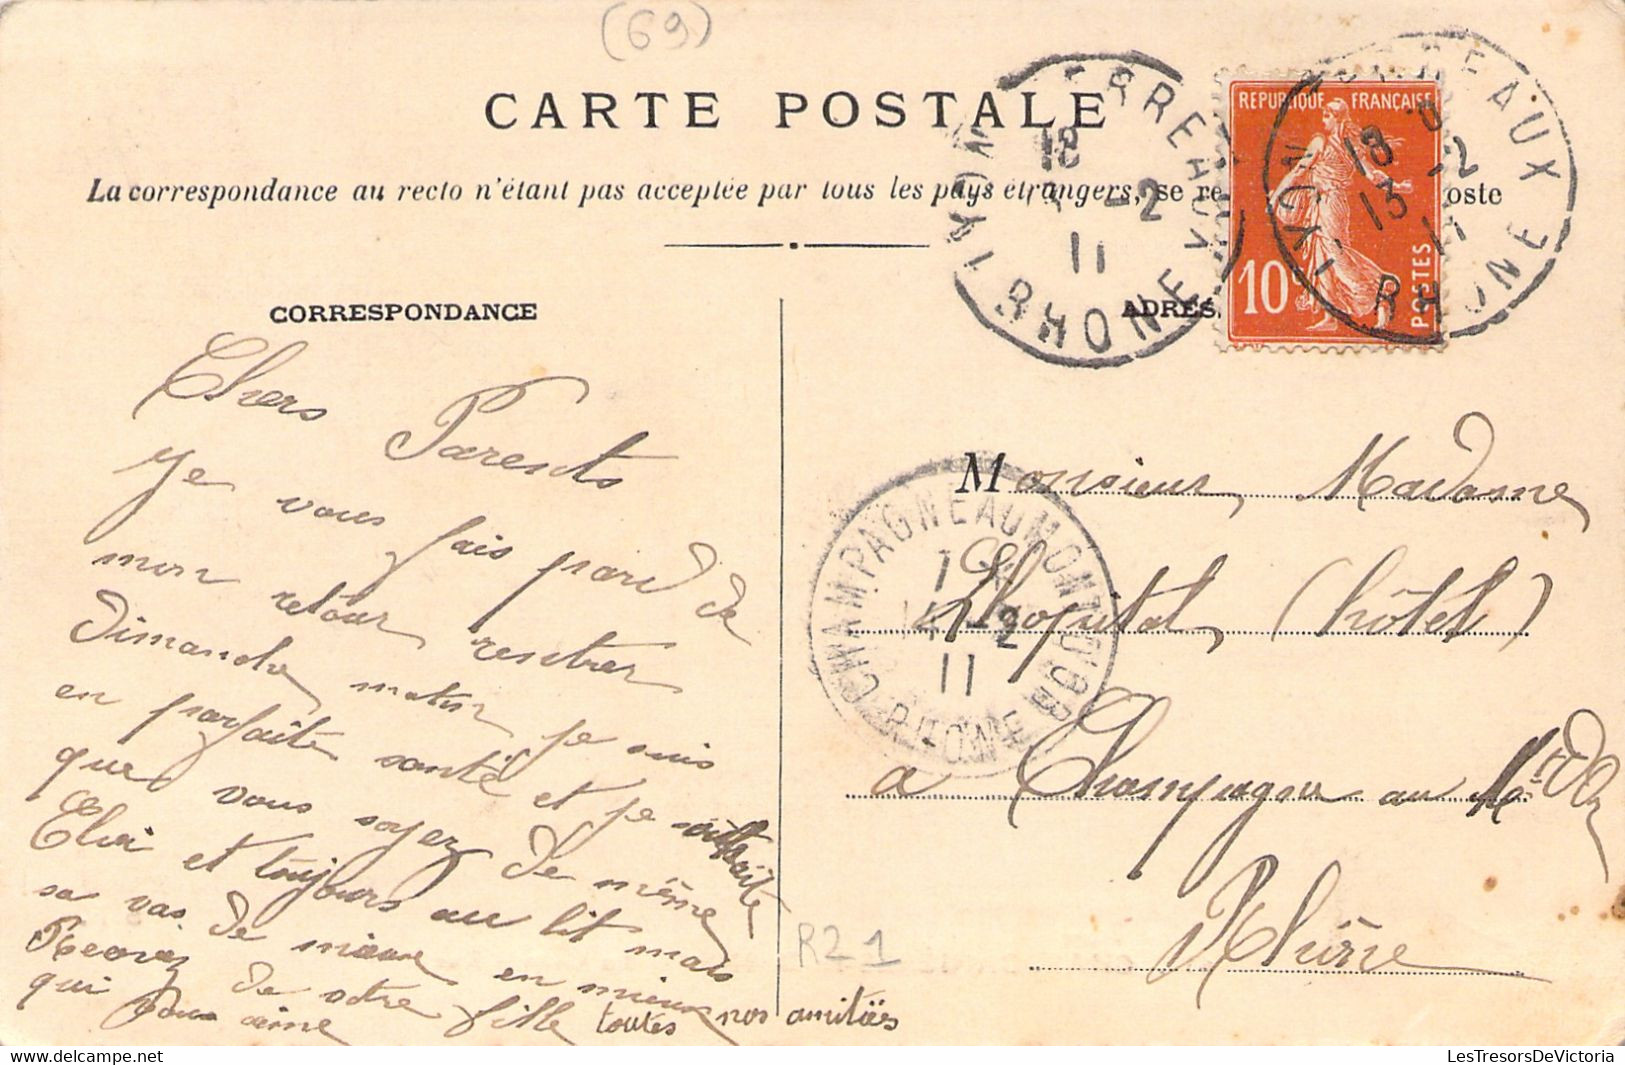 (69)
CARTE POSTALE
La correspondance au recto n'étant pas acceptée par tous les pays étrangers, se re oste
CORRESPONDANCE
ADRES
REPUBLIQUE FRANÇAISE
10c
POSTES
LYON TERREAUX
18
13 -2
11
RHONE
LYON TERREAUX
18
13 -2
11
RHONE
CHAMPAGNE AU MONT D'OR
7
14 -2
11
RHONE
Chers Parents
Je vous fais pard de
mon retour rentrer
Dimanche matin je suis
en parfaite santé et je souhaite
que vous soyez de même
Eloi et toujours au lit mais
sa vas de mieux en mieux
Recevez de votre fille toutes nos amitiés
qui vous aime
Monsieur, Madame
Lhopital, (hôtel)
a Champagne au Mt D'Or
Rhône
R21
LesTresorsDeVictoria